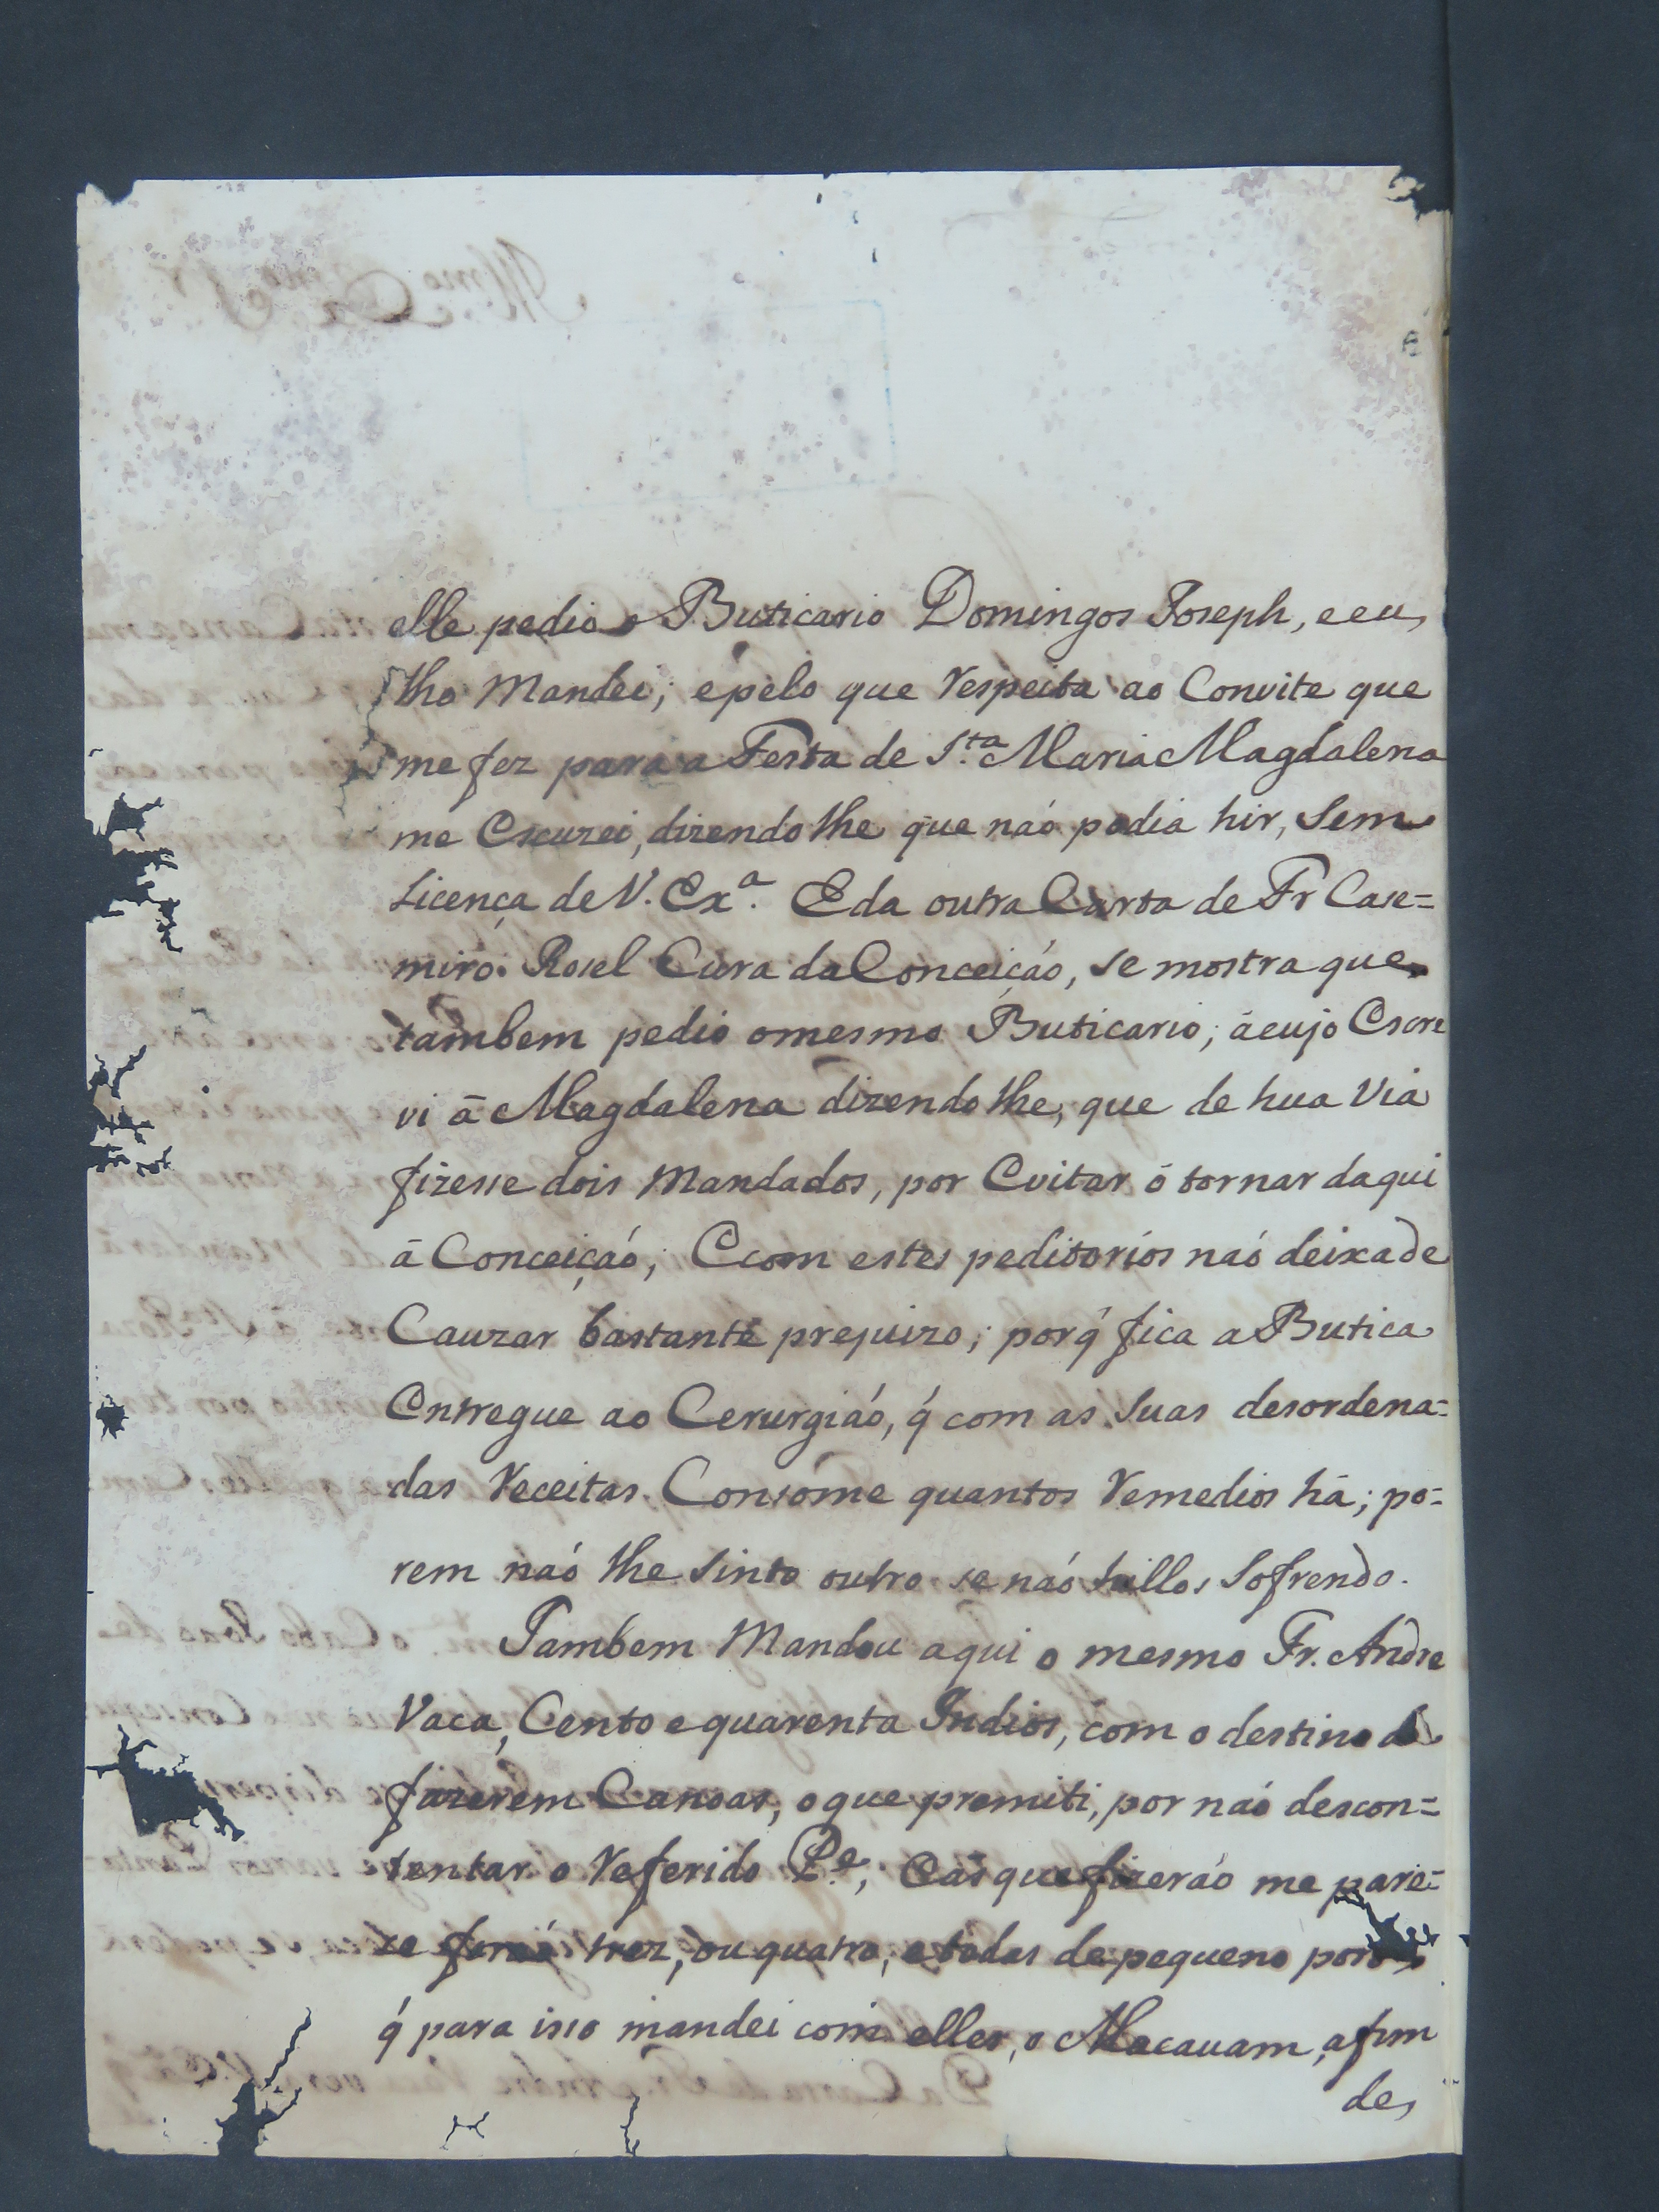 elle pedio o Buticario Domingos Joseph, e eu
lho Mandei; e pelo que respeita ao Convite que
me fez para a Festa de S.ta Maria Magdalena
me Escuzei, dizendo lhe que naó podia hir, Sem
Licença de V. Ex.a E da outra Carta de Fr Case=
miro Rosel Cura da Conceiçáo, se mostra que
tambem pedio o mesmo Buticario; á cujo Escre
vi á Magdalena dizendo lhe, que de hua Via
fizesse dois Mandados, por Evitar ó tornar daqui
á Conceiçáo; E com estes peditorios naó deixa de
Cauzar bastante prejuizo; porq̃ fica a Butica
Entregue ao Cerurgiáo, q̃ com as Suas desordena=
das receitas Consóme quantos remedios há; po=
rem naó lhe Sinto outro se naó hillos Sofrendo.
Tambem Mandou aqui o mesmo Fr. Andre
Vaca, Cento e quarenta Indios, com o destino de
fazerem Canoas, o que premiti, por naó descon=
tentar o referido P.e; E as que fizeráo me pare=
ze tres, ou quatro, e todas de pequeno porte
q̃ para isso mandei com elles, o Macauam, afim
de